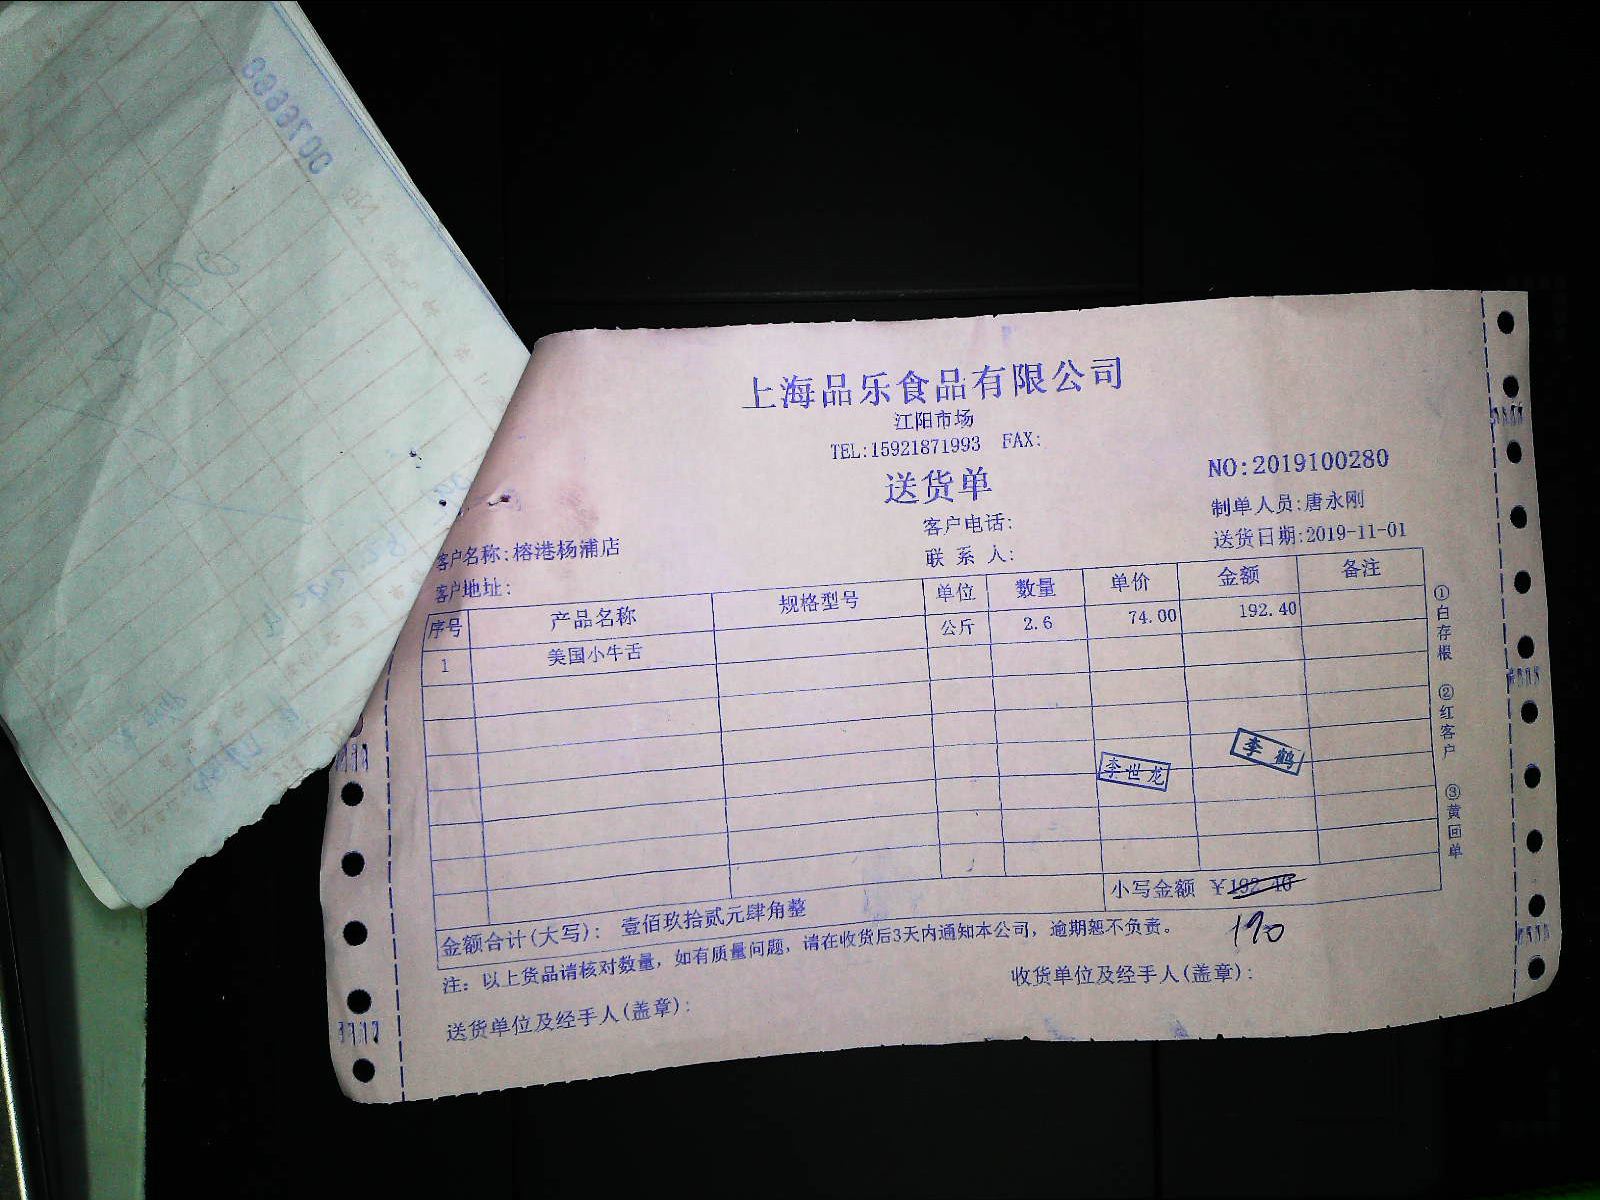 上海品乐食品有限公司
江阳市场
TEL:15921871993 FAX:
送货单
NO:2019100280
客户电话:
制单人员:唐永刚
客户名称:榕港杨浦店
联系人:
送货日期:2019-11-01
客户地址:
序号 产品名称 规格型号 单位 数量 单价 金额 备注
1 美国小牛舌 公斤 2.6 74.00 192.40
李世龙
李鹤
①白存根 ②红客户 ③黄回单
小写金额 ¥192.40
金额合计(大写): 壹佰玖拾贰元肆角整
190
注: 以上货品请核对数量, 如有质量问题, 请在收货后3天内通知本公司, 逾期恕不负责。
送货单位及经手人(盖章):
收货单位及经手人(盖章):